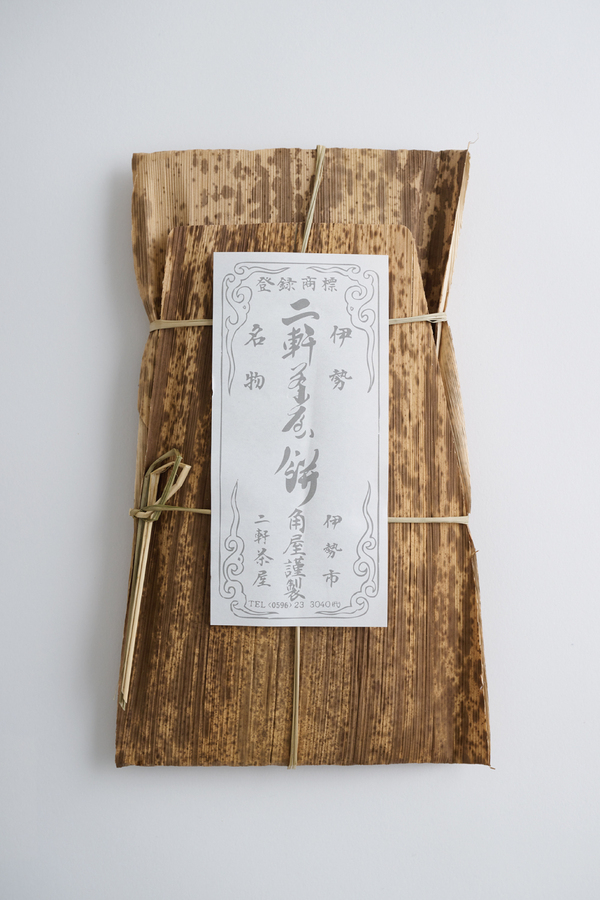 登録商標
伊勢
名物
二軒茶屋餅
伊勢市
角屋謹製
二軒茶屋
TEL(0596)23 3040㈹